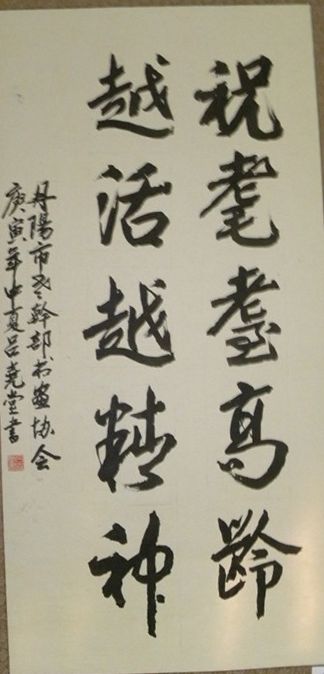 祝耄耋高齡
越活越精神
丹陽市老幹部书画协会
庚寅年中夏吕堯堂書